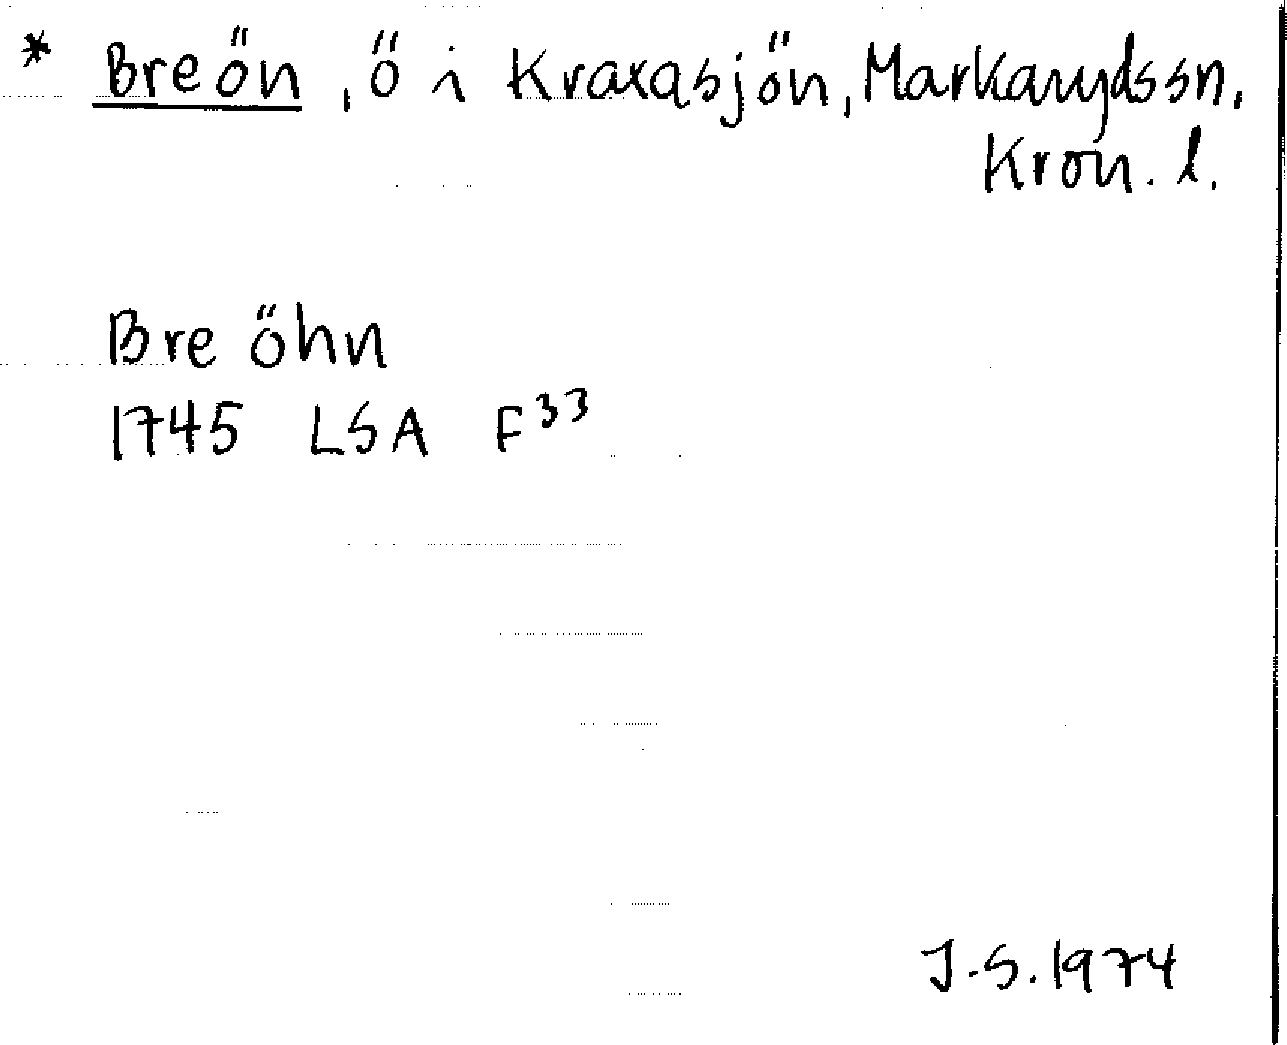 * Breön, ö i Kraxasjön, Markarydssn,
Kron. l.
Bre öhn
1745 LSA F33
J.S. 1974